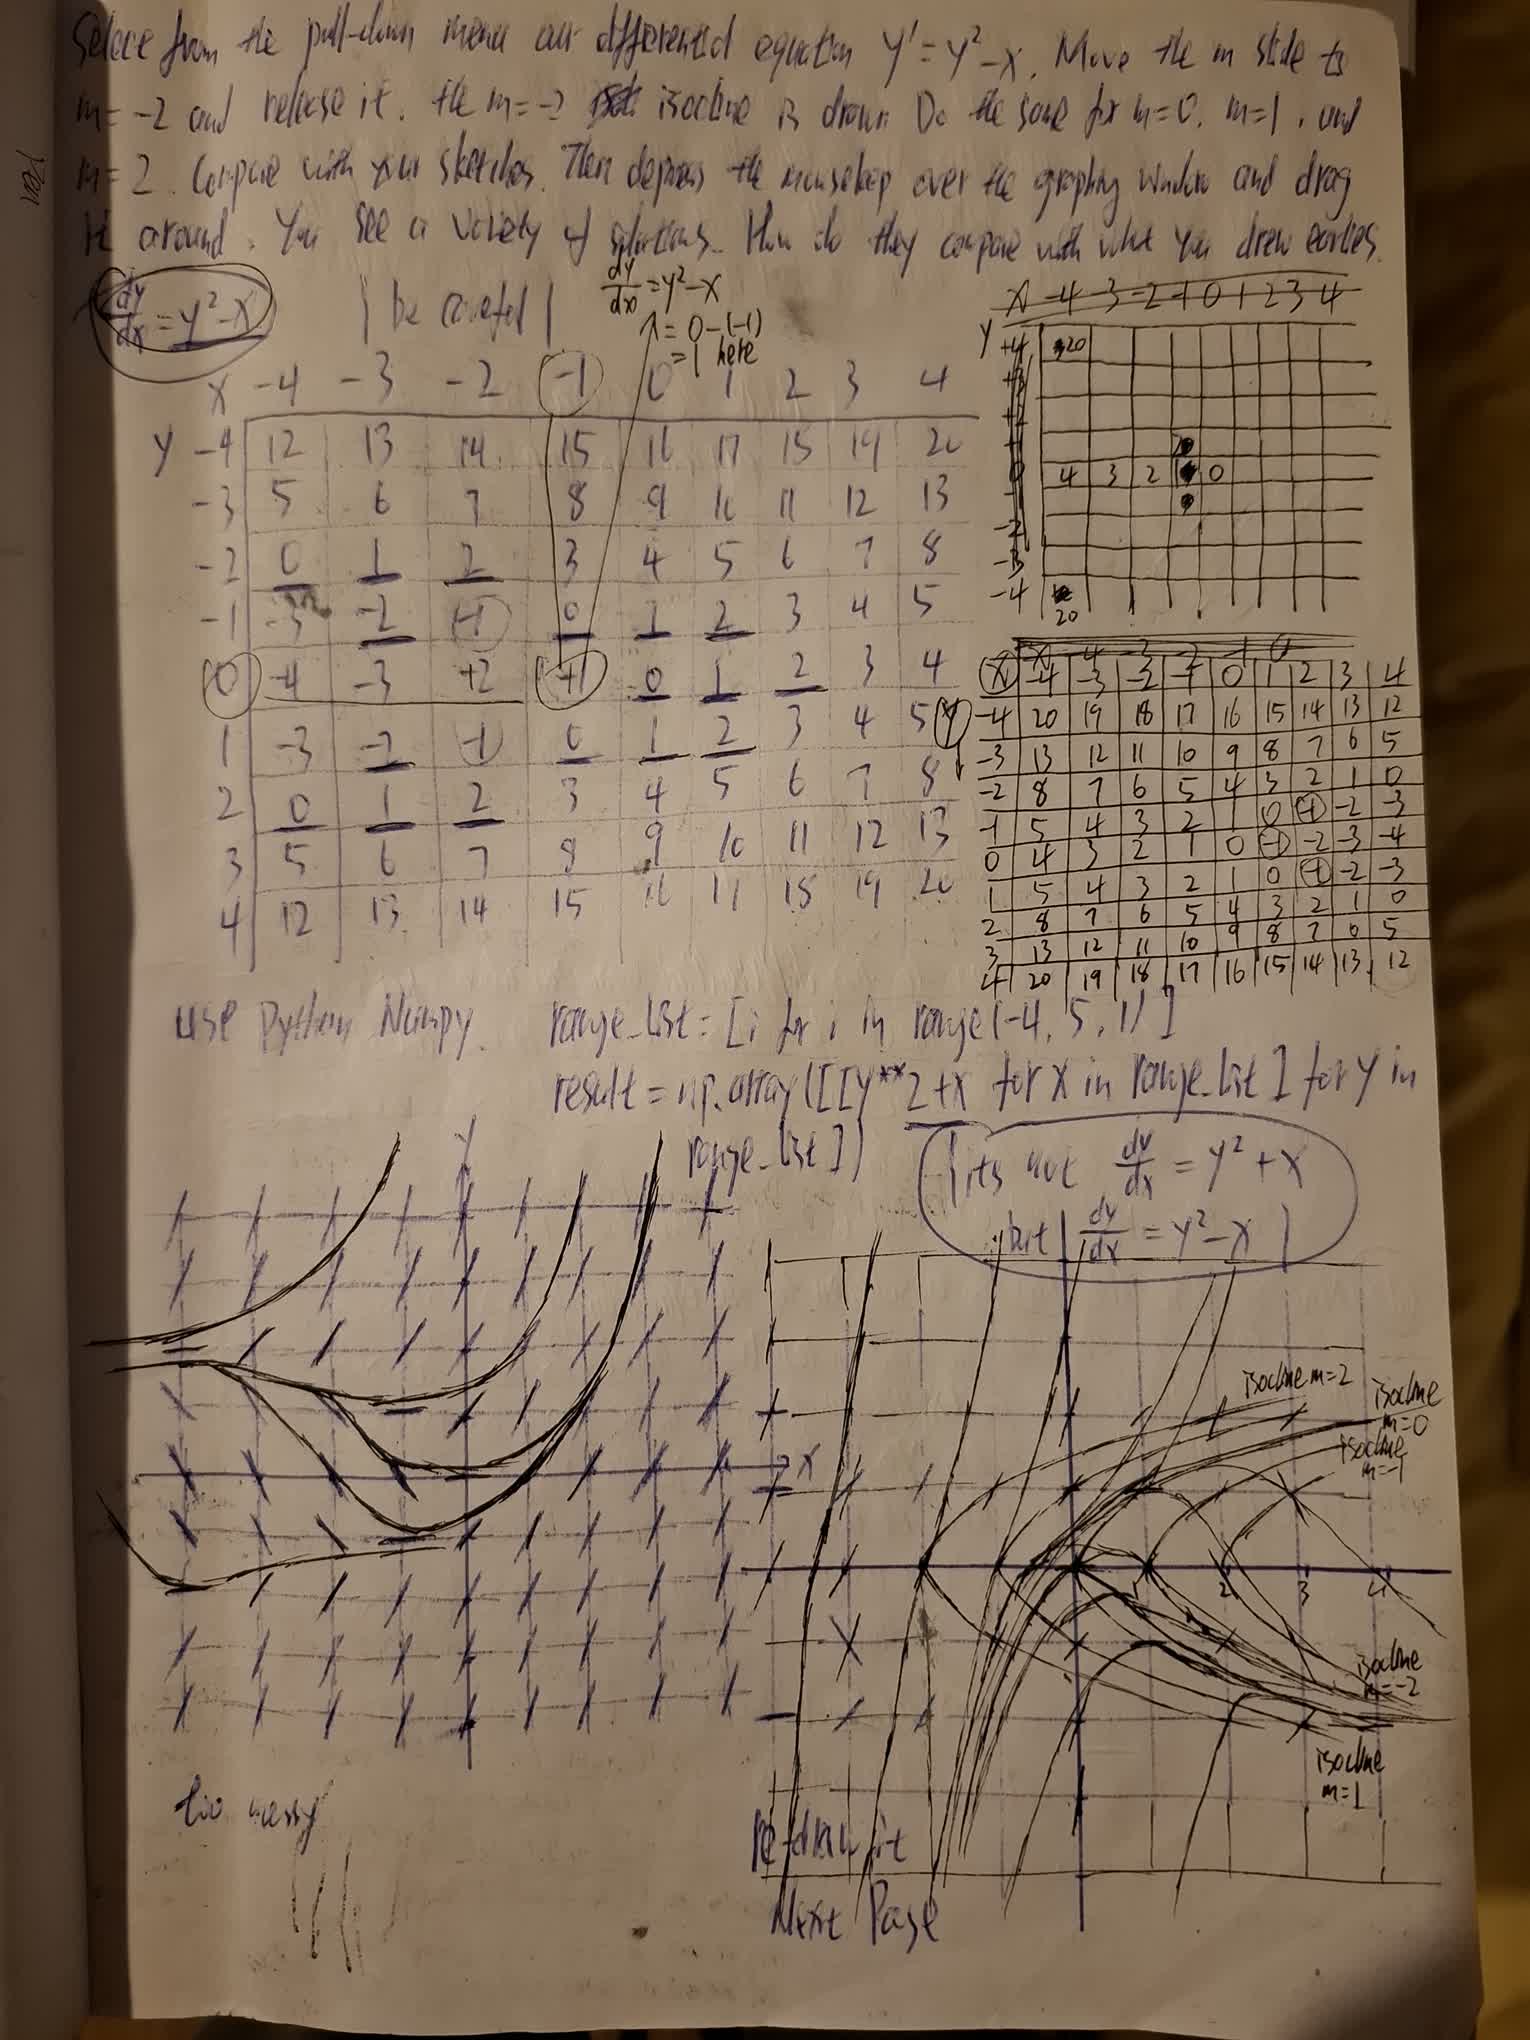 Select from the pull-down menu our differential equation y' = y² - x. Move the m slide to
m = -2 and release it. the m = -2 isocline is drawn Do the same for m=0, m=1, and
m = 2. Compare with your sketches. Then depress the over the graphing window and drag
it around. You see a variety of solutions. How do they compare with what you drew earlier.
dy/dx = y² - x | be careful |
dy/dx = y² - x
= 0 - (-1)
= 1 here
X -4 -3 -2 -1 0 1 2 3 4
Y -4 12 13 14 15 16 17 18 19 20
-3 5 6 7 8 9 10 11 12 13
-2 0 1 2 3 4 5 6 7 8
-1 -3 -2 -1 0 1 2 3 4 5
0 -4 -3 +2 +1 0 1 2 3 4
1 -3 -2 -1 0 1 2 3 4 5
2 0 1 2 3 4 5 6 7 8
3 5 6 7 8 9 10 11 12 13
4 12 13 14 15 16 17 18 19 20
X -4 -3 -2 -1 0 1 2 3 4
Y +4 20
+3
+2
0 4 3 2 1 0
-2
-3
-4
20
X -4 -3 -2 -1 0
X -4 -3 -2 -1 0 1 2 3 4
Y -4 20 19 18 17 16 15 14 13 12
-3 13 12 11 10 9 8 7 6 5
-2 8 7 6 5 4 3 2 1 0
-1 5 4 3 2 1 0 -1 -2 -3
0 4 3 2 1 0 -1 -2 -3 -4
1 5 4 3 2 1 0 -1 -2 -3
2 8 7 6 5 4 3 2 1 0
3 13 12 11 10 9 8 7 6 5
4 20 19 18 17 16 15 14 13 12
use Python Numpy. range_list = [i for i in range(-4, 5, 1)]
result = np.array([[y**2+x for x in range_list] for y in
range_list])
its not dy/dx = y² + x
but | dy/dx = y² - x |
Y
X
isocline m=2
isocline
m=0
isocline
m=-1
1 2 3 4
isocline
m=-2
isocline
m=1
too messy
re-draw it
Next Page